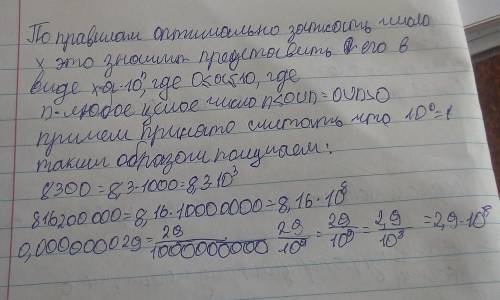 По правилам оптимально записать число
x это значит представить его в
виде x=a·10ⁿ, где 0≤a≤10, где
n-любое целое число n<0 U n=0 U n>0
примем принято считать что 10⁰=1
таким образом получаем:
8300=8,3·1000=8,3·10³
816200000=8,16·10000000=8,16·10⁸
0,000000029=29/1000000000 29/10⁹=29/10⁹=2,9/10⁸=2,9·10⁸